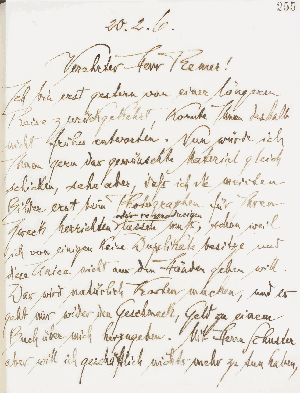 255
20.2.6.
Verehrter Herr Remer!
Ich bin erst gestern von einer längeren
Reise zurückgekehrt, konnte Ihnen deshalb
nicht früher antworten. Nun würde ich
Ihnen gern das gewünschte Material gleich
schicken, sehe aber, daß ich die meisten
Bilder erst vom Photographen für Ihren
Zweck herrichten lassen muß, schon weil
ich von einigen keine Duplikate besitze und
diese Unica nicht aus den Händen geben will.
Das wird natürlich Kosten machen, und es
geht mir wider den Geschmack, Geld zu einem
Buch über mich herzugeben. Mit Herrn Schuster
aber will ich geschäftlich nichts mehr zu tun haben,